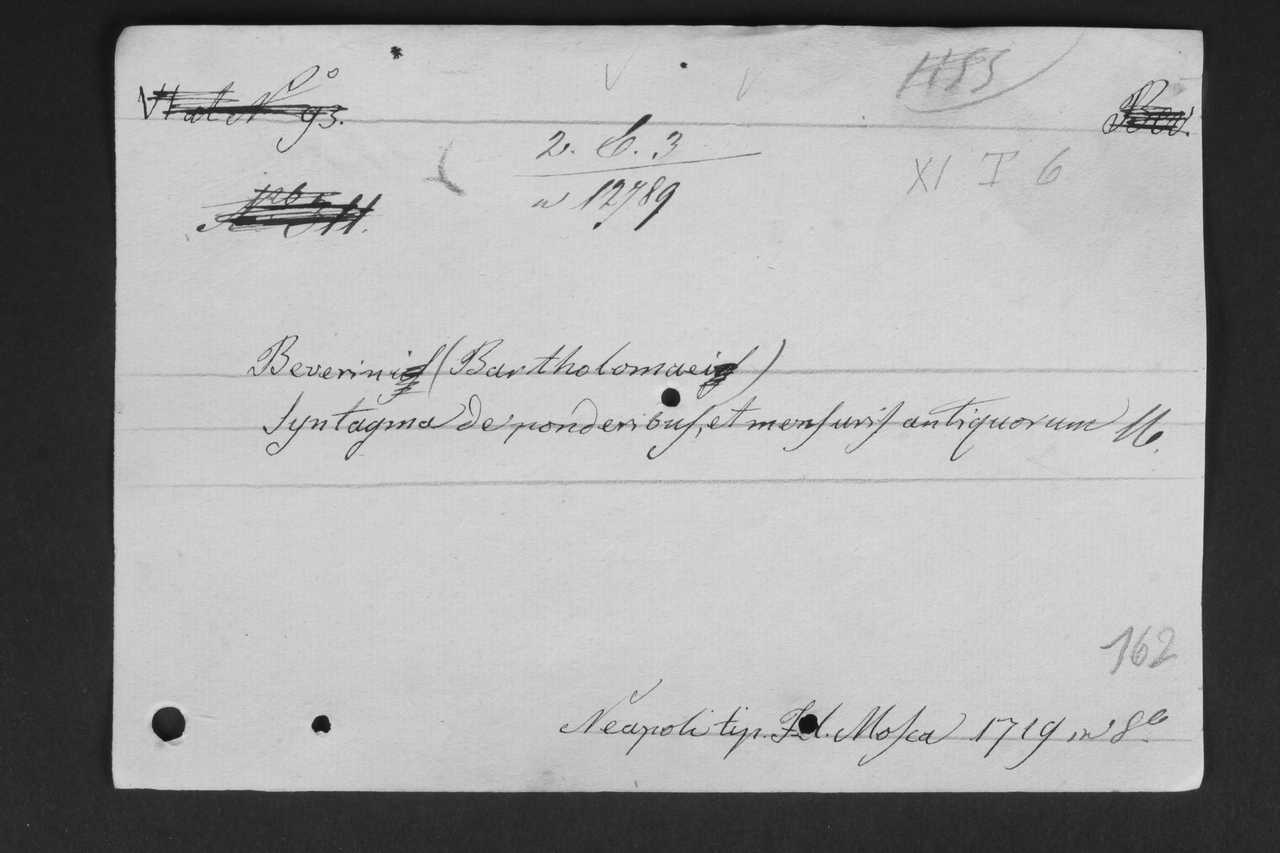 No 93.
2. C. 3
n 12789
XI I 6
Beverini (Bartholomaei)
Syntagma de ponderibus, et mensuris antiquorum
162
Neapoli tip. Mosca 1719 in 8o